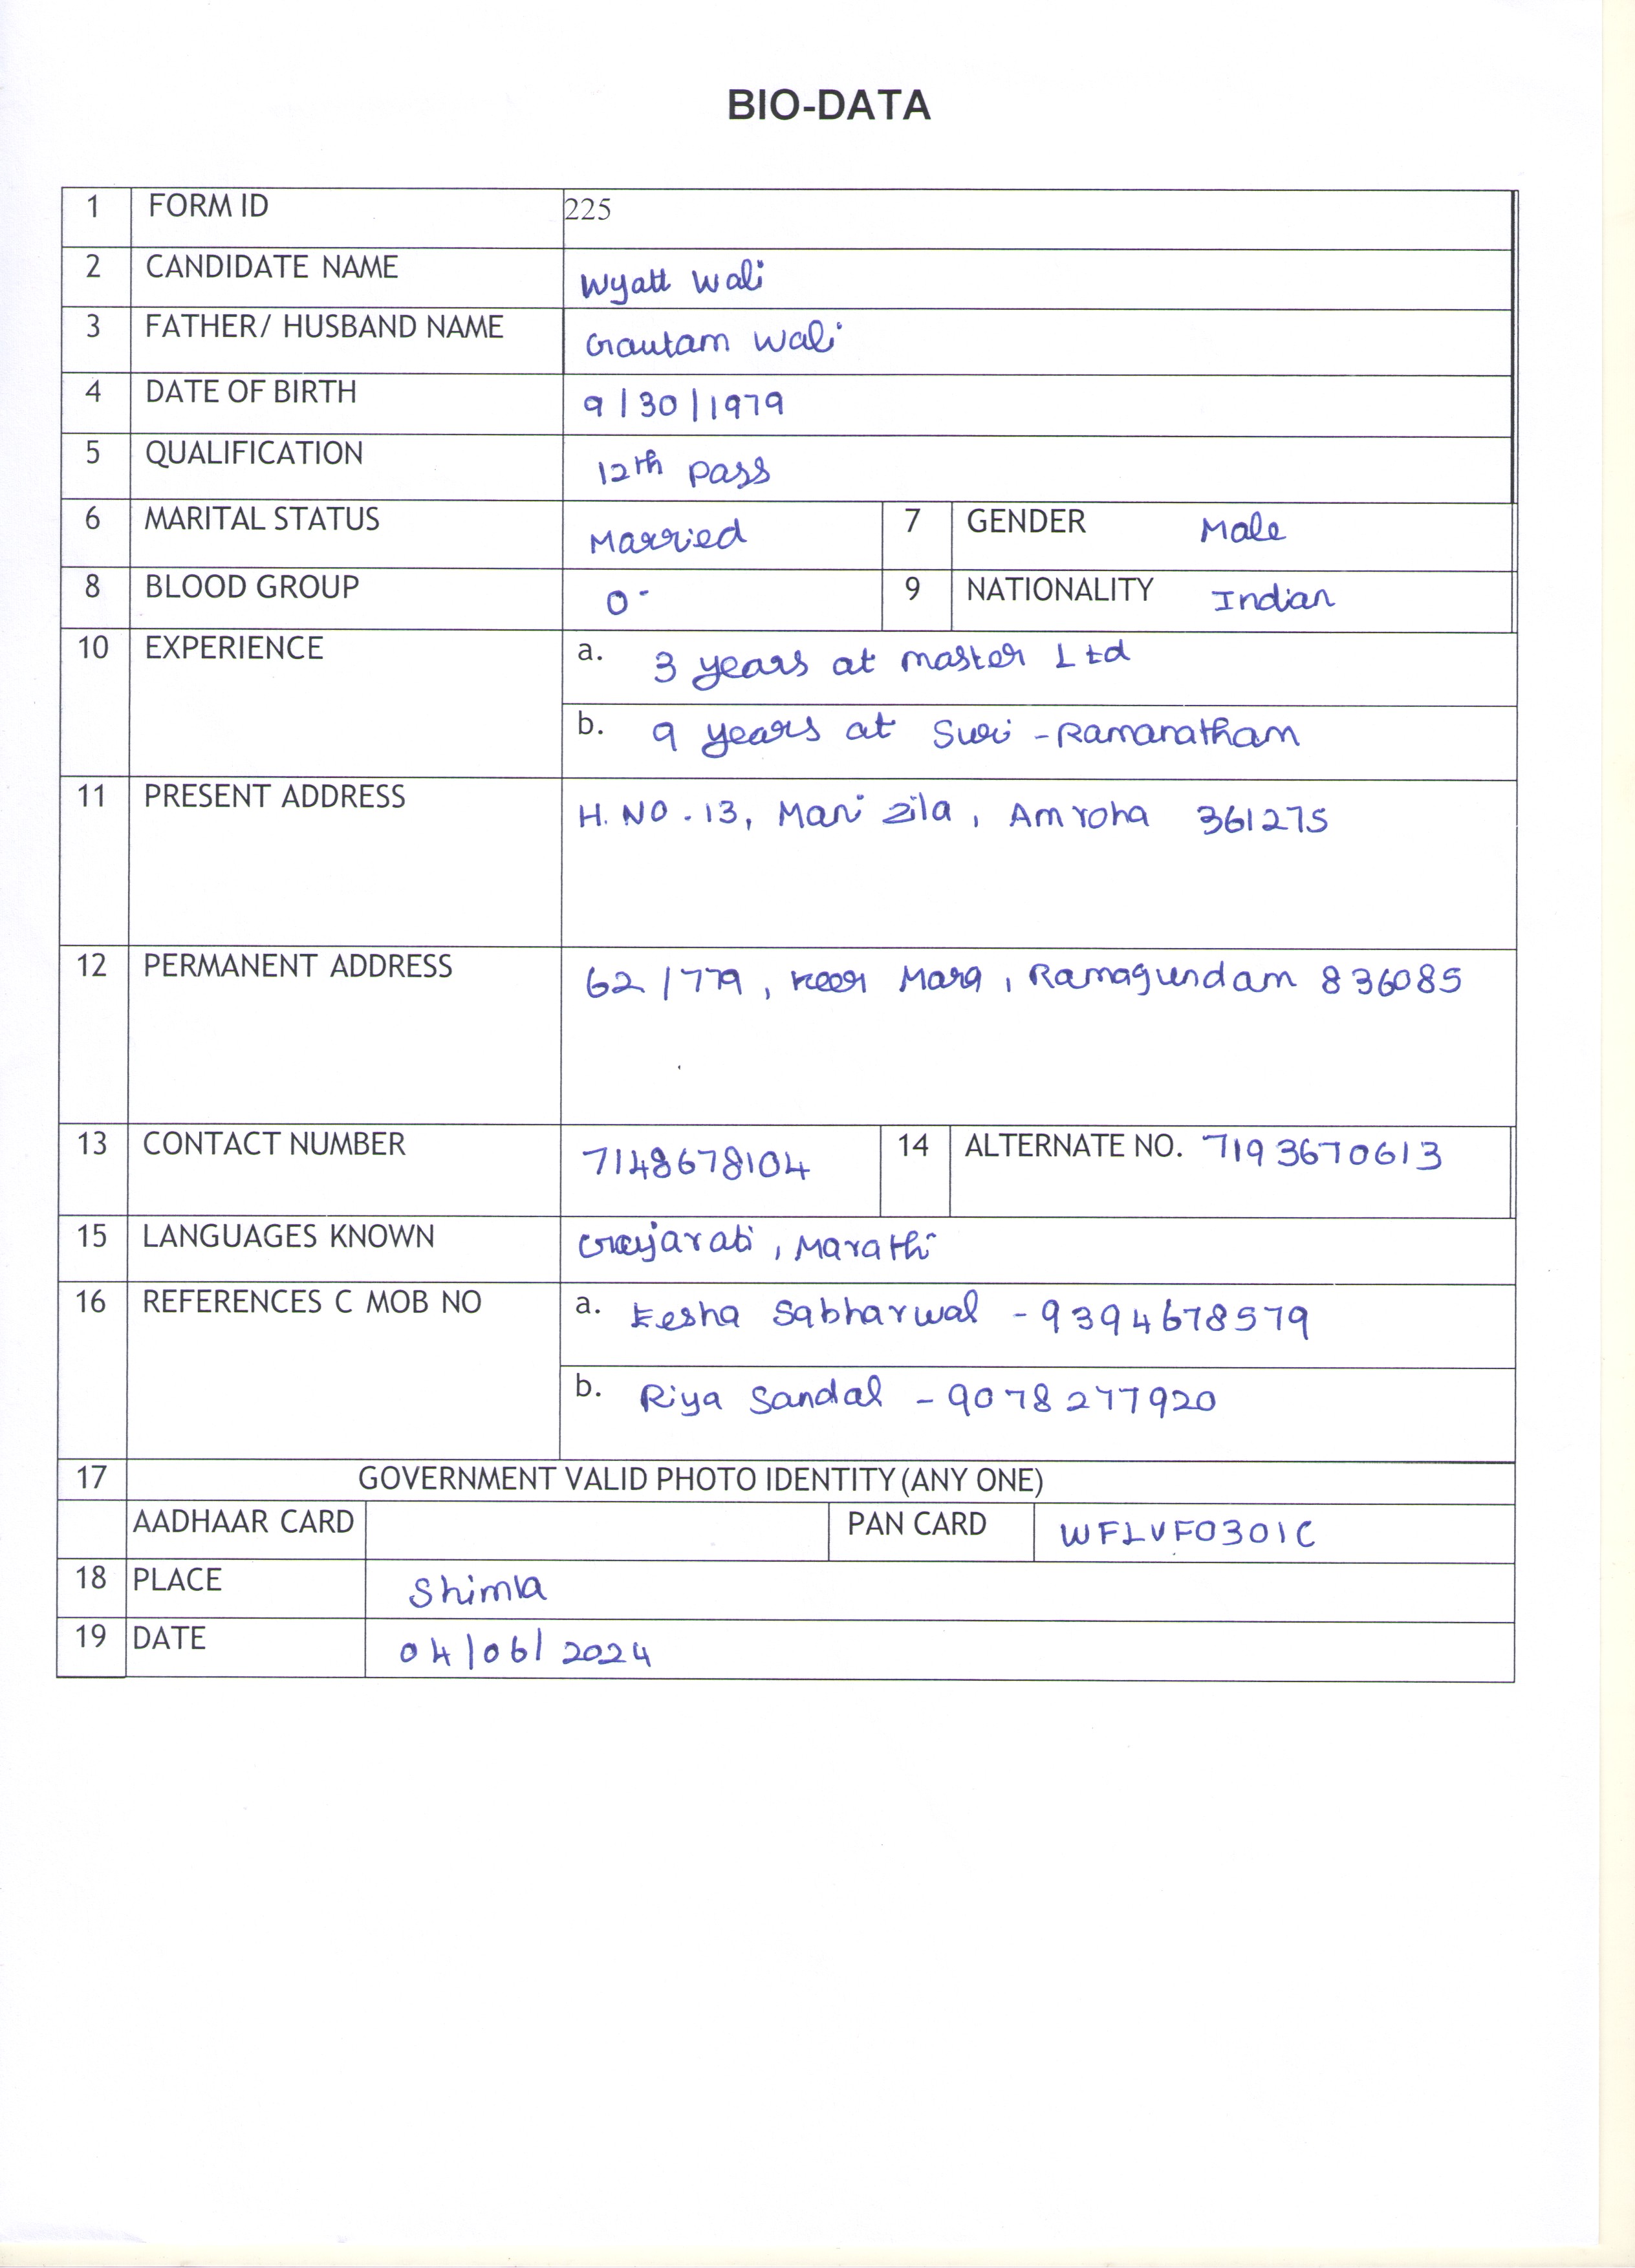 BIO-DATA
1 FORM ID 225
2 CANDIDATE NAME Wyatt Wali
3 FATHER/ HUSBAND NAME Gautam Wali
4 DATE OF BIRTH 9/30/1979
5 QUALIFICATION 12th pass
6 MARITAL STATUS Married 7 GENDER Male
8 BLOOD GROUP O- 9 NATIONALITY Indian
10 EXPERIENCE a. 3 years at master Ltd
b. 9 years at Suri-Ramanatham
11 PRESENT ADDRESS H.NO.13, Mani zila, Amroha 361275
12 PERMANENT ADDRESS 62/779, Keer Marg, Ramagundam 836085
13 CONTACT NUMBER 7148678104 14 ALTERNATE NO. 7193670613
15 LANGUAGES KNOWN Gujarati, Marathi
16 REFERENCES C MOB NO a. Eesha Sabharwal - 9394678579
b. Riya Sandal - 9078277920
17 GOVERNMENT VALID PHOTO IDENTITY (ANY ONE)
AADHAAR CARD PAN CARD WFLVF0301C
18 PLACE Shimla
19 DATE 04/06/2024